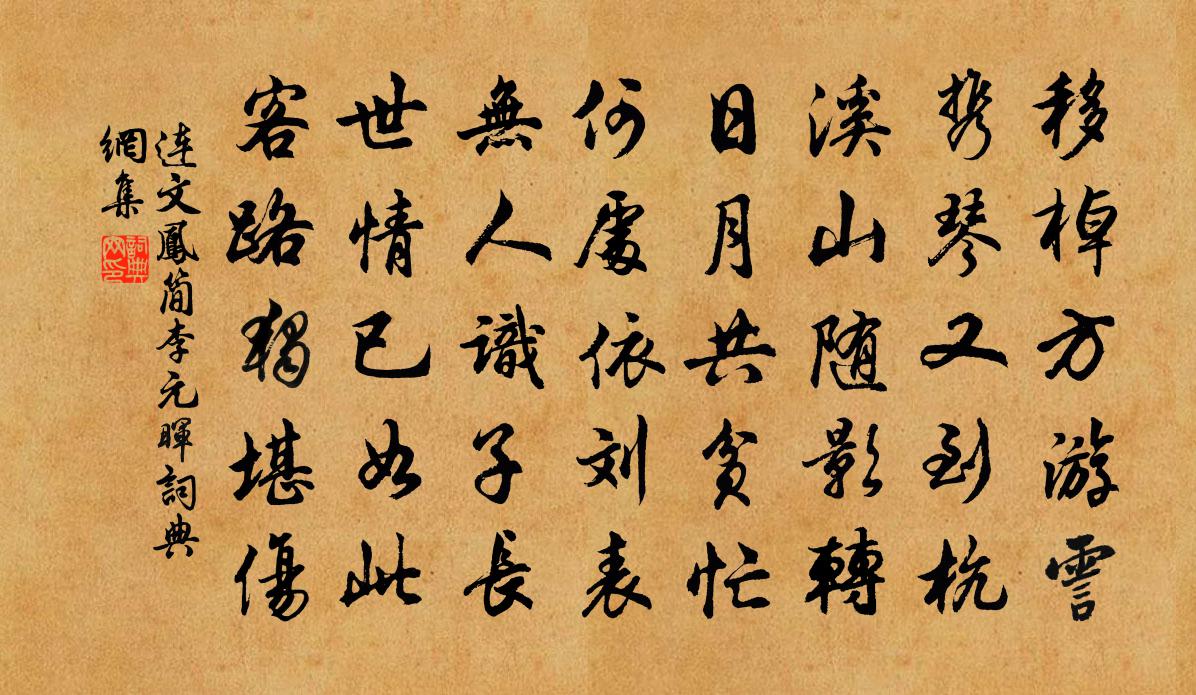 移棹方游霅
携琴又到杭
溪山随影轉
日月共贫忙
何處依刘表
無人識子長
世情已如此
客路獨堪傷
連文鳳简李元暉詞典
網集
詞典
网印